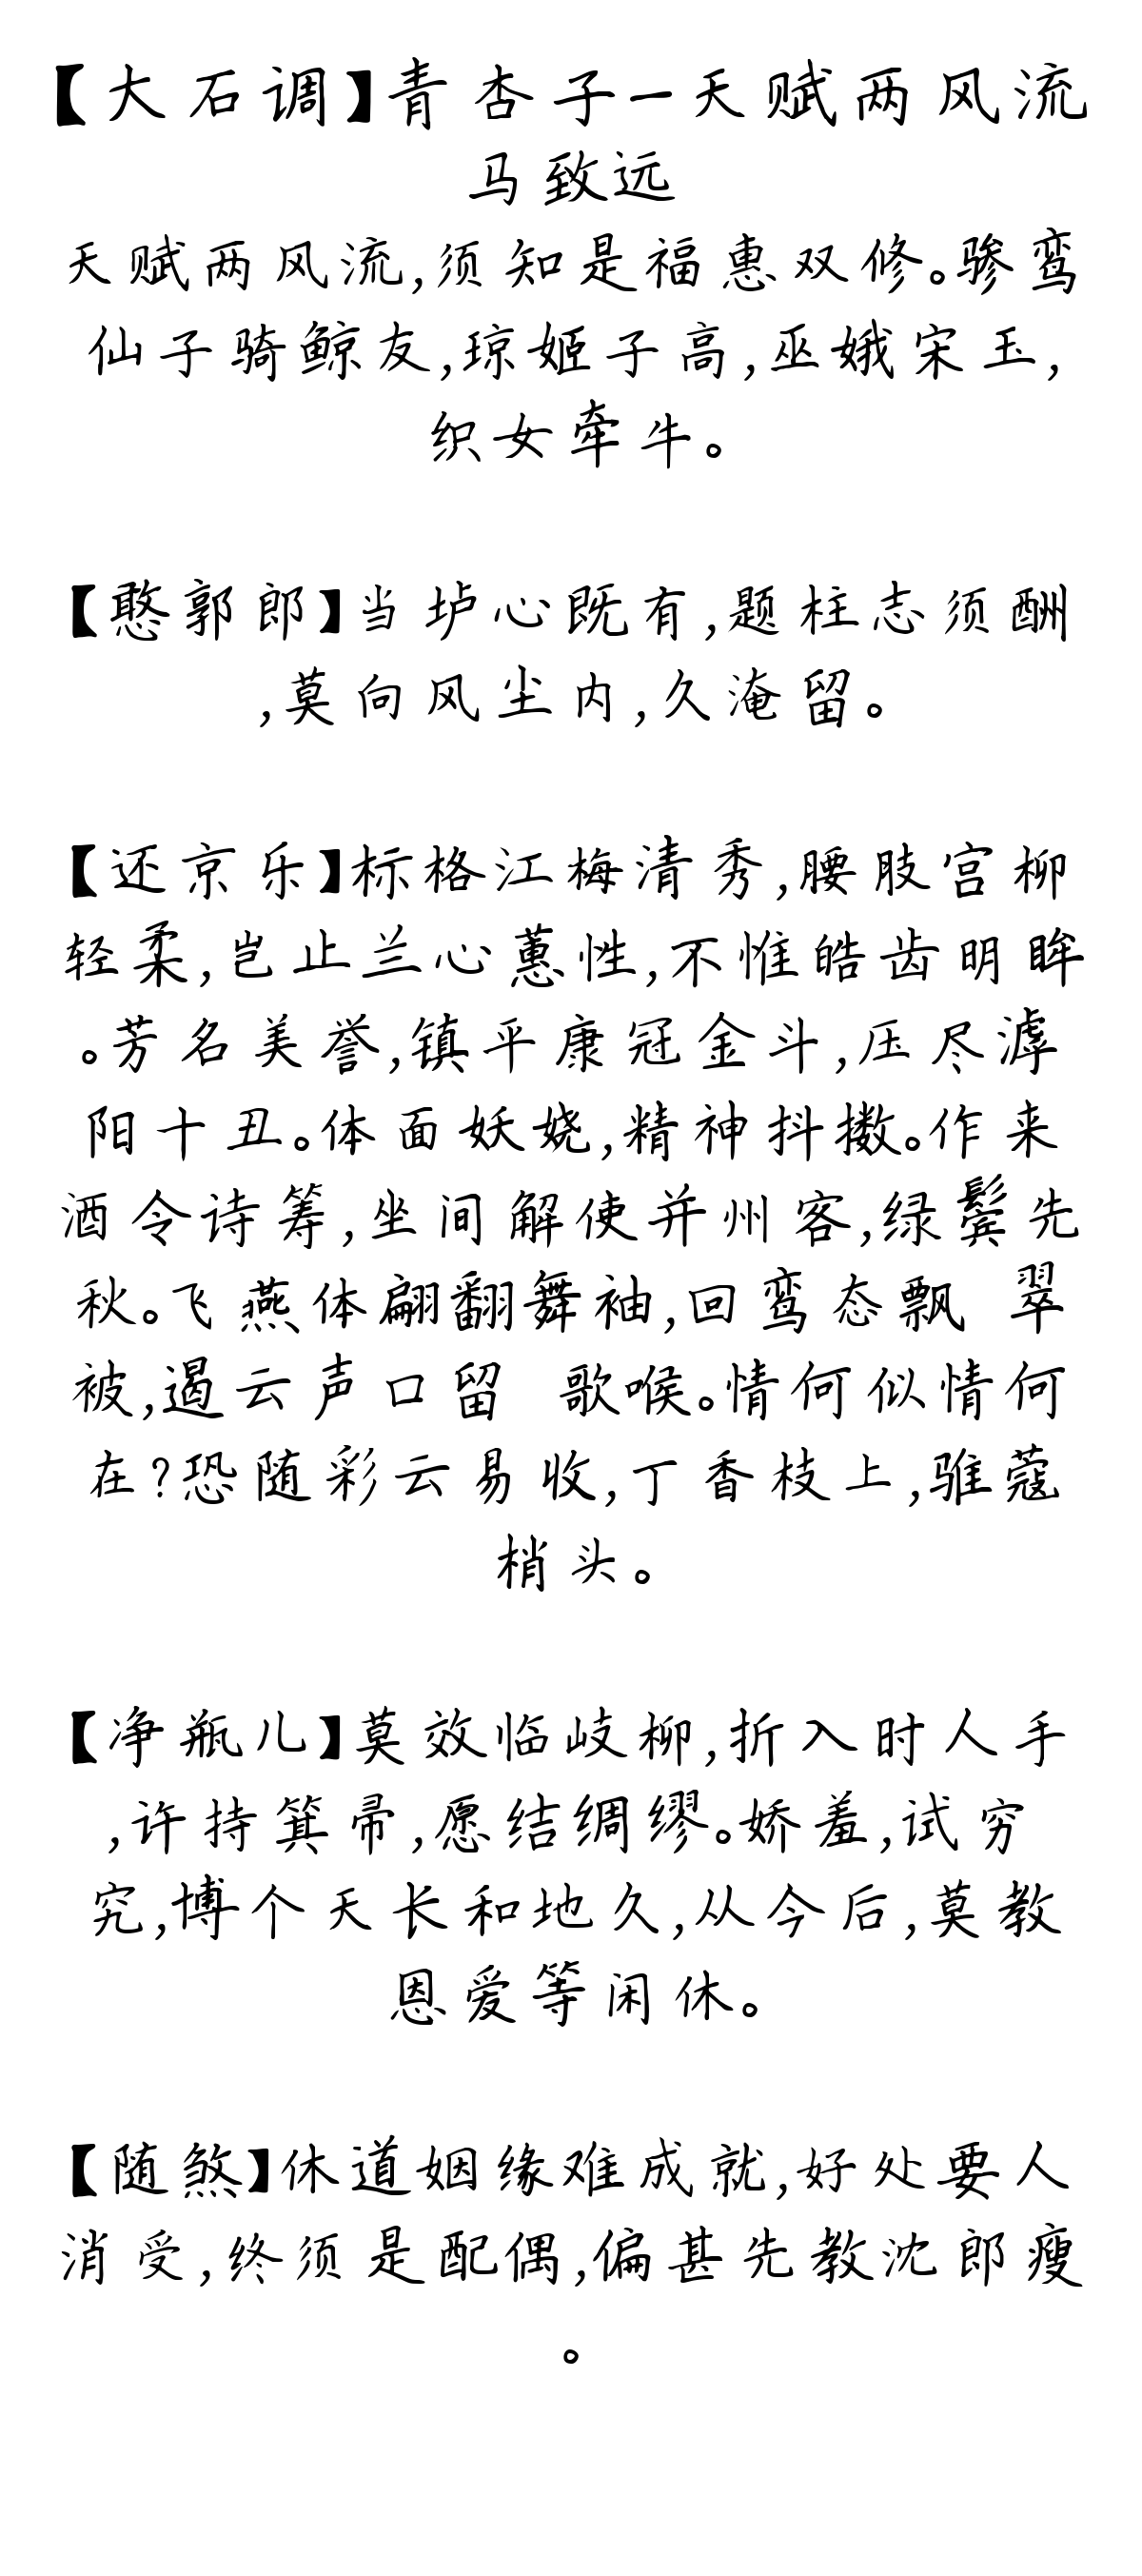 【大石调】青杏子-天赋两风流
马致远
天赋两风流,须知是福惠双修。骖鸾
仙子骑鲸友,琼姬子高,巫娥宋玉,
织女牵牛。
【憨郭郎】当垆心既有,题柱志须酬
,莫向风尘内,久淹留。
【还京乐】标格江梅清秀,腰肢宫柳
轻柔,岂止兰心蕙性,不惟皓齿明眸
。芳名美誉,镇平康冠金斗,压尽滹
阳十丑。体面妖娆,精神抖擞。作来
酒令诗筹,坐间解使并州客,绿鬓先
秋。飞燕体翩翻舞袖,回鸾态飘 翠
被,遏云声口留 歌喉。情何似情何
在?恐随彩云易收,丁香枝上,骓蔻
梢头。
【净瓶儿】莫效临岐柳,折入时人手
,许持箕帚,愿结绸缪。娇羞,试穷
究,博个天长和地久,从今后,莫教
恩爱等闲休。
【随煞】休道姻缘难成就,好处要人
消受,终须是配偶,偏甚先教沈郎瘦
。